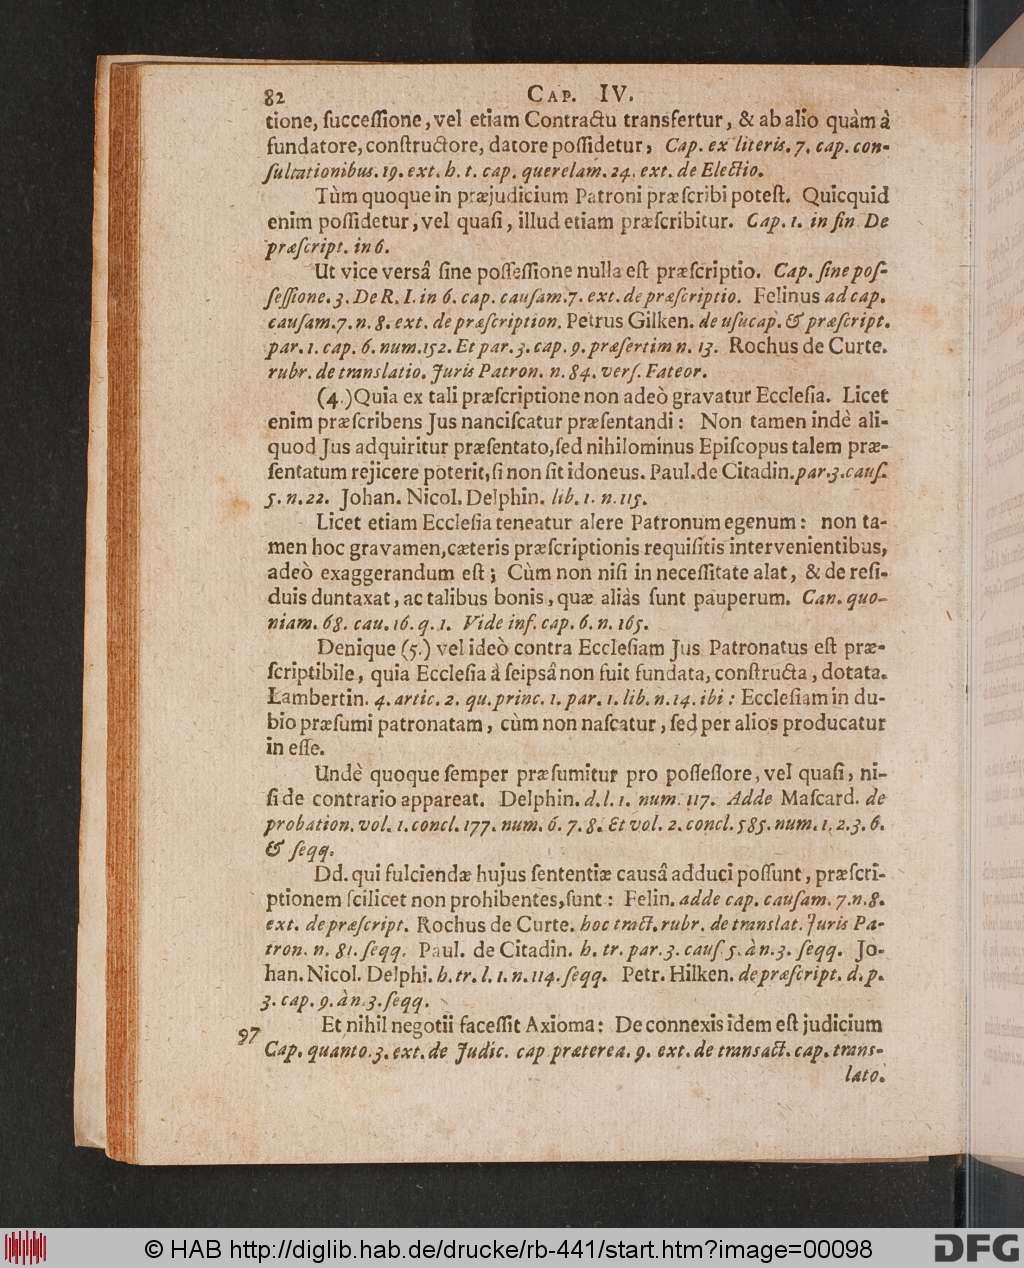 82 CAP. IV.
tione, ſucceſſione, vel etiam Contractu transfertur, & ab alio quàm à
fundatore, conſtructore, datore poſſidetur, Cap. ex literis. 7. cap. con-
ſultationibus. 19. ext. h. t. cap. querelam. 24. ext. de Electio.
Tùm quoque in præjudicium Patroni præſcribi poteſt. Quicquid
enim poſſidetur, vel quaſi, illud etiam præſcribitur. Cap. 1. in fin De
præſcript. in 6.
Ut vice versâ ſine poſſeſſione nulla eſt præſcriptio. Cap. ſine poſ-
ſeſſione. 3. De R. I. in 6. cap. cauſam. 7. ext. de præſcriptio. Felinus ad cap.
cauſam. 7. n. 8. ext. de præſcription. Petrus Gilken. de uſucap. & præſcript.
par. 1. cap. 6. num. 152. Et par. 3. cap. 9. præſertim n. 13. Rochus de Curte.
rubr. de translatio. Juris Patron. n. 84. verſ. Fateor.
(4.) Quia ex tali præſcriptione non adeò gravatur Eccleſia. Licet
enim præſcribens Jus nanciſcatur præſentandi: Non tamen indè ali-
quod Jus adquiritur præſentato, ſed nihilominus Epiſcopus talem præ-
ſentatum rejicere poterit, ſi non ſit idoneus. Paul. de Citadin. par. 3. cauſ.
5. n. 22. Johan. Nicol. Delphin. lib. 1. n. 115.
Licet etiam Eccleſia teneatur alere Patronum egenum: non ta-
men hoc gravamen, cæteris præſcriptionis requiſitis intervenientibus,
adeò exaggerandum eſt; Cùm non niſi in neceſſitate alat, & de reſi-
duis duntaxat, ac talibus bonis, quæ aliàs ſunt pauperum. Can. quo-
niam. 68. cau. 16. q. 1. Vide inf. cap. 6. n. 165.
Denique (5.) vel ideò contra Eccleſiam Jus Patronatus eſt præ-
ſcriptibile, quia Eccleſia à ſeipsâ non fuit fundata, conſtructa, dotata.
Lambertin. 4. artic. 2. qu. princ. 1. par. 1. lib. n. 14. ibi: Eccleſiam in du-
bio præſumi patronatam, cùm non naſcatur, ſed per alios producatur
in eſſe.
Undè quoque ſemper præſumitur pro poſſeſſore, vel quaſi, ni-
ſi de contrario appareat. Delphin. d. l. 1. num. 117. Adde Maſcard. de
probation. vol. 1. concl. 177. num. 6. 7. 8. Et vol. 2. concl. 585. num. 1. 2. 3. 6.
& ſeqq.
Dd. qui fulciendæ hujus ſententiæ causâ adduci poſſunt, præſcri-
ptionem ſcilicet non prohibentes, ſunt: Felin. adde cap. cauſam. 7. n. 8.
ext. de præſcript. Rochus de Curte. hoc tract. rubr. de translat. Juris Pa-
tron. n. 81. ſeqq. Paul. de Citadin. h. tr. par. 3. cauſ. 5. à n. 3. ſeqq. Jo-
han. Nicol. Delphi. h. tr. l. 1. n. 114. ſeqq. Petr. Hilken. de præſcript. d. p.
3. cap. 9. à n. 3. ſeqq.
97 Et nihil negotii faceſſit Axioma: De connexis idem eſt judicium
Cap. quanto. 3. ext. de Judic. cap præterea. 9. ext. de transact. cap. trans-
lato.
© HAB http://diglib.hab.de/drucke/rb-441/start.htm?image=00098
DFG